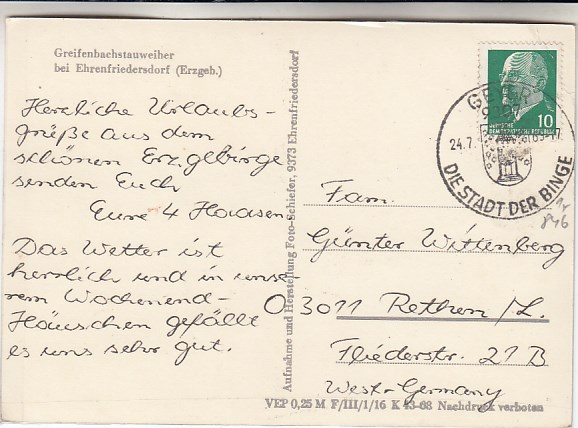 Greifenbachstauweiher
bei Ehrenfriedersdorf (Erzgeb.)
Herzliche Urlaubs-
grüße aus dem
schönen Erzgebirge
senden Euch
Eure 4 Haasen
Das Wetter ist
herrlich und in unse-
rem Wochenend-
Häuschen gefällt
es uns sehr gut.
Aufnahme und Herstellung Foto-Schiefer, 9373 Ehrenfriedersdorf
10
DEUTSCHE
DEMOKRATISCHE REPUBLIK
GEYER
24.7.
DIE STADT DER BINGE
846
Fam.
Günter Wittenberg
3011 Rethen /L.
Fliederstr. 21 B
West-Germany
VEP 0,25 M F/III/1/16 K 43-68 Nachdruck verboten